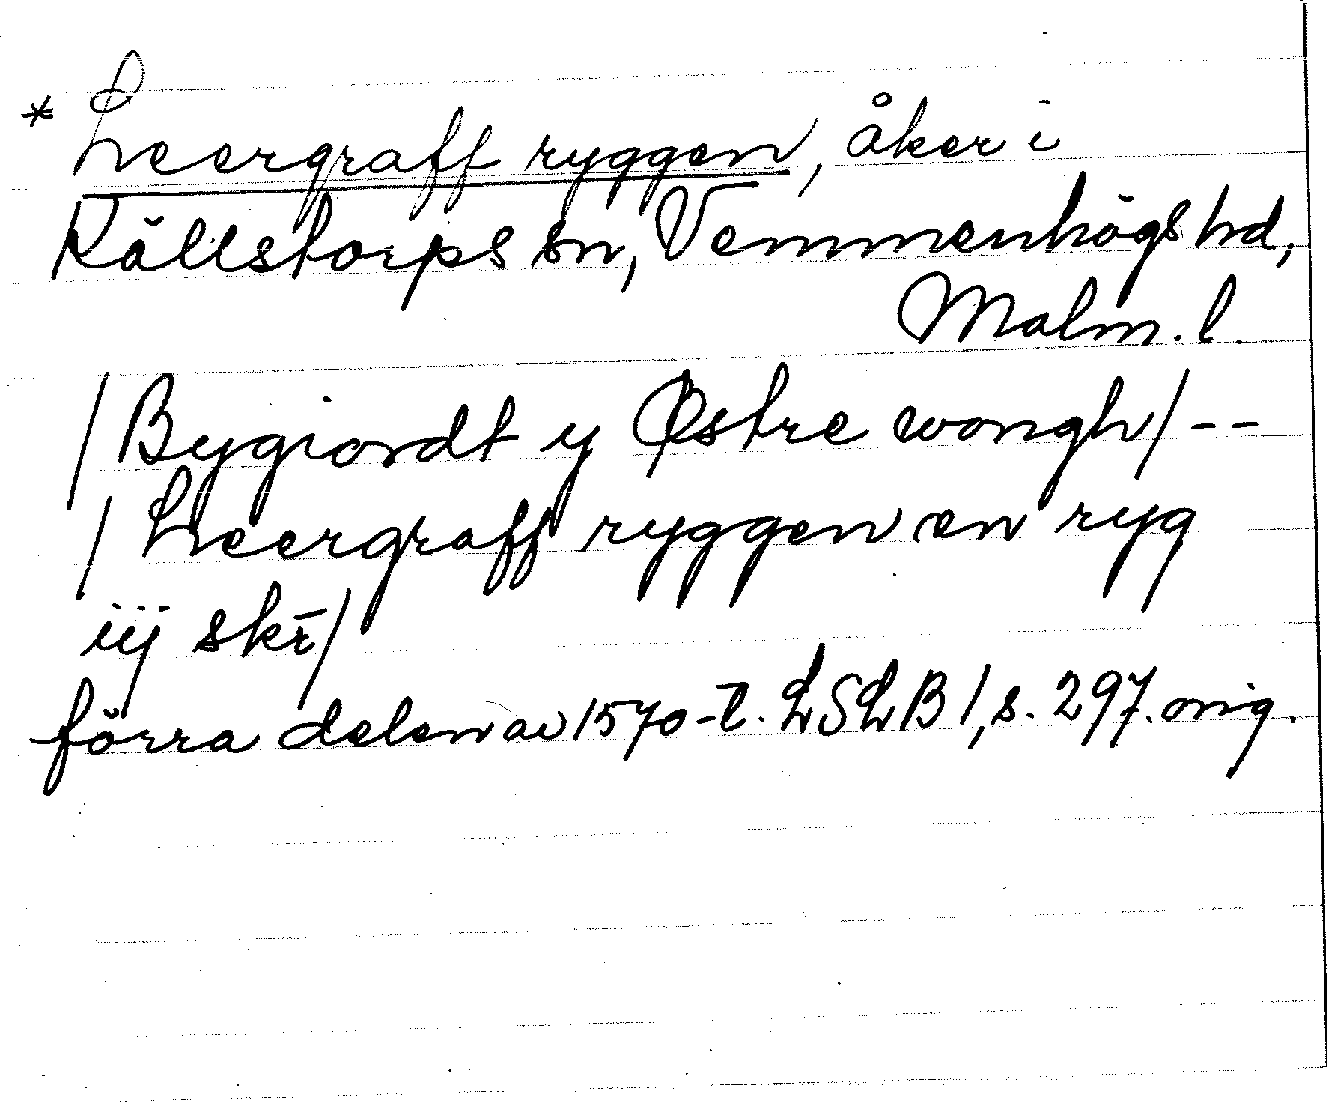 * Leergraff ryggen, åker i
Källstorps sn, Vemmenhögs hd,
Malm. l.
/Bygiordt y Østre wongh/ --
/Leergraff ryggen en ryg
iij skr̄/
förra delen av 1570-t. LSLB 1, s. 297. orig.